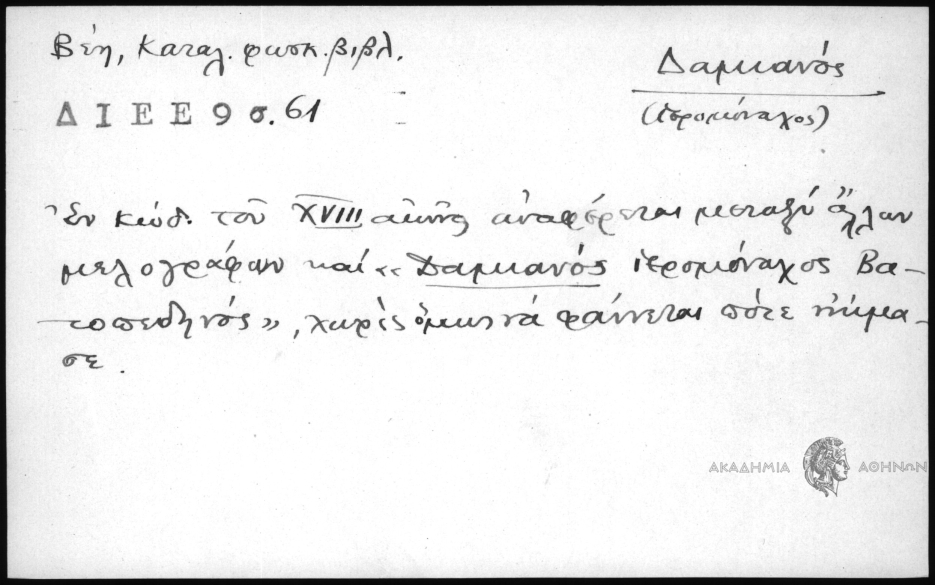 Βέη, Καταλ. φωσκ. βιβλ.
Δαμιανός
ΔΙΕΕ 9 σ. 61
(ἱερομόναχος)
Ἐν κώδ. τοῦ XVIII αἰῶνος ἀναφέρεται μεταξύ ἄλλων
μελογράφων καί «Δαμιανός ἱερομόναχος Βα-
τοπεδηνός», χωρίς ὅμως νά φαίνεται πότε ἤκμα-
σε.
ΑΚΑΔΗΜΙΑ ΑΘΗΝΩΝ